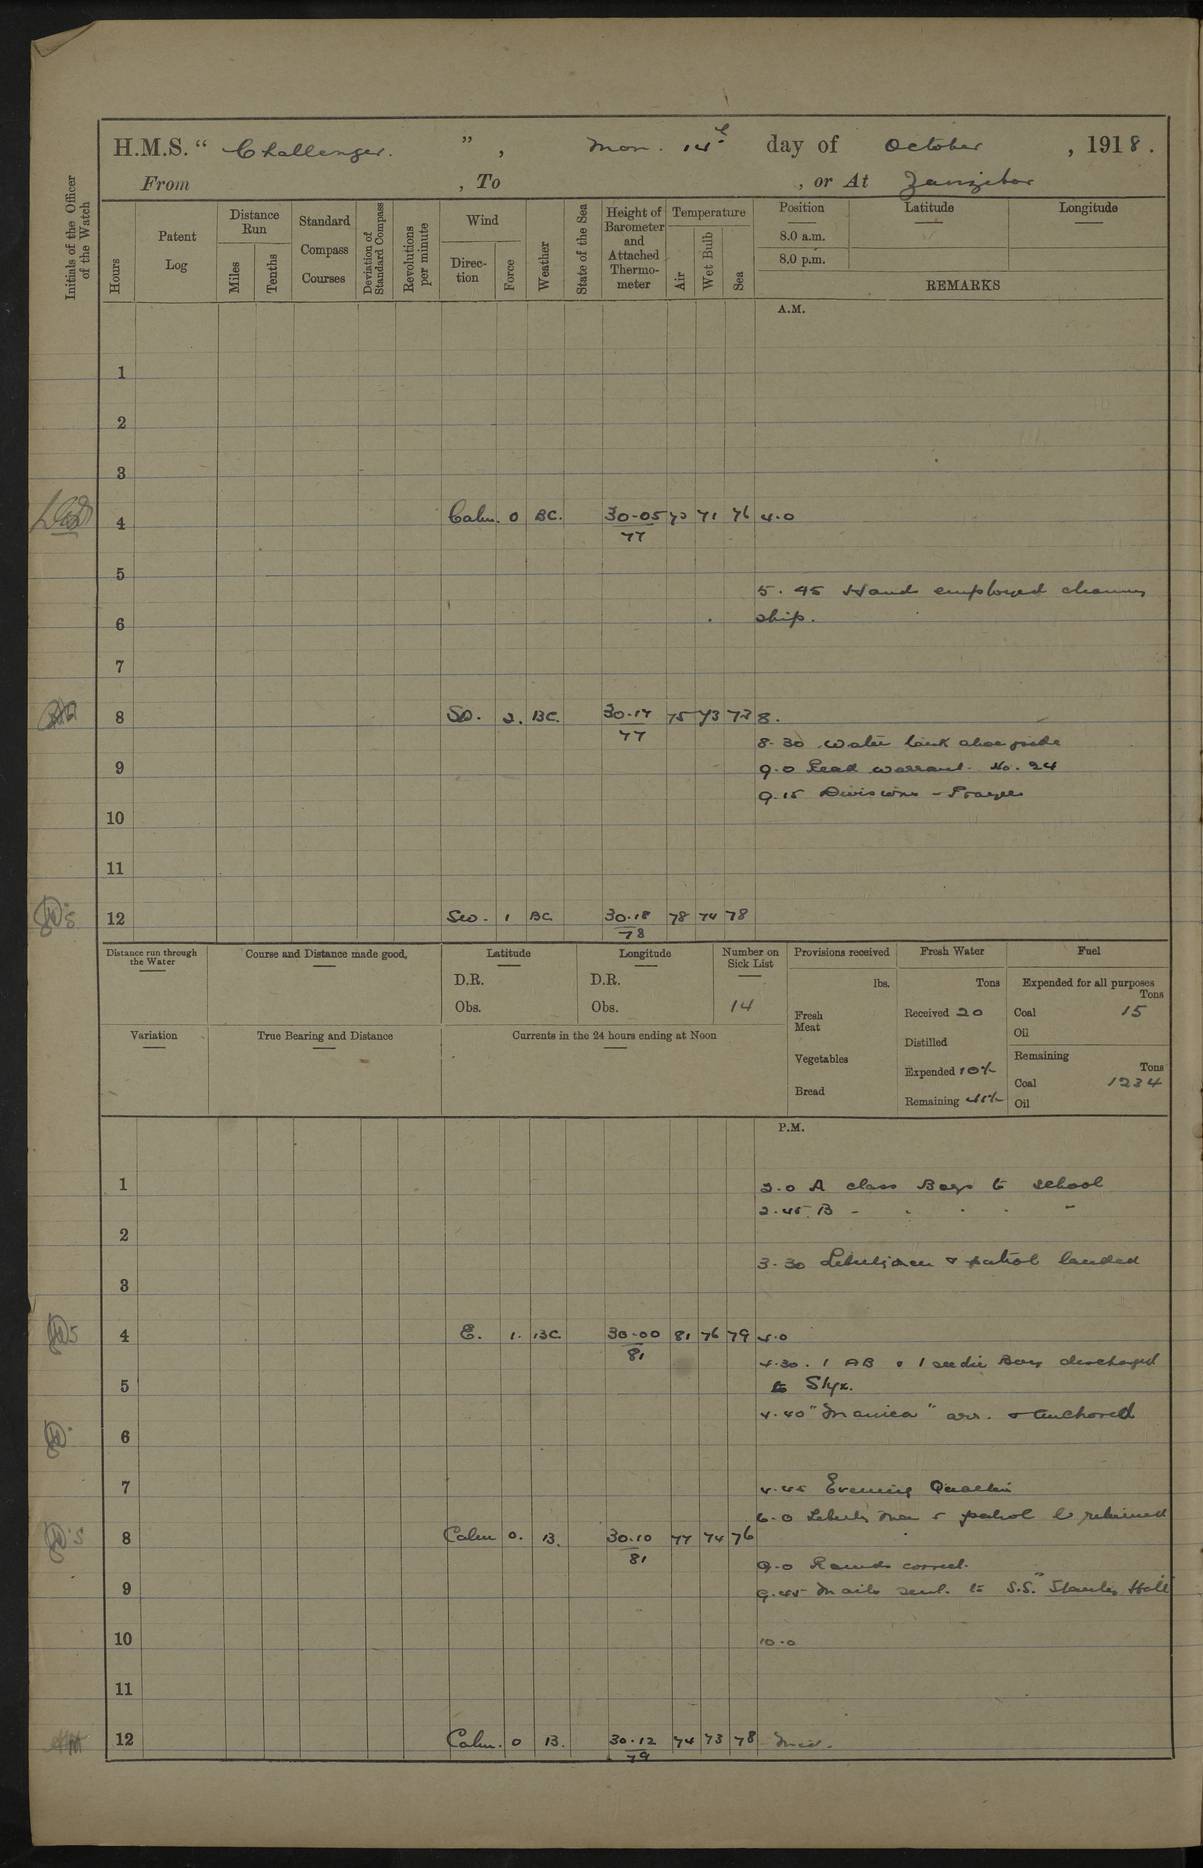 H.M.S. " Challenger. ", Mon. 14th day of October, 1918.
From , To , or At Zanzibar
Initials of the Officer of the Watch
Hours
Patent Log
Distance Run
Miles
Tenths
Standard Compass Courses
Deviation of Standard Compass
Revolutions per minute
Wind
Direction
Force
Weather
State of the Sea
Height of Barometer and Attached Thermometer
Temperature
Air
Wet Bulb
Sea
Position
8.0 a.m.
8.0 p.m.
Latitude
Longitude
REMARKS
A.M.
1
2
3
4 Calm. 0 BC. 30.05 71 76 4.0
77
5
5.45 Hands employed cleaning
6 ship.
7
8 2. BC. 30.17 75 73 73 8.
77
8.30 Water tank alongside
9 9.0 Read warrant. No. 24
9.15 Divisions - Prayers
10
11
12 SW. 1 BC 30.18 78 74 78
78
Distance run through the Water
Course and Distance made good,
Latitude
D.R.
Obs.
Longitude
D.R.
Obs.
Number on Sick List
14
Provisions received
lbs.
Fresh Meat
Vegetables
Bread
Fresh Water
Tons
Received 20
Distilled
Expended 10½
Remaining
Fuel
Expended for all purposes
Tons
Coal 15
Oil
Remaining
Tons
Coal 1234
Oil
Variation
True Bearing and Distance
Currents in the 24 hours ending at Noon
P.M.
1 2.0 A class Boys to school
2.45 B - " " " "
2
3.30 Libertymen & patrol landed
3
4 E. 1. BC. 30.00 81 76 79 4.0
81
4.30. 1 AB & 1 seedie Boy discharged
5 to Styx.
4.40 "Manica" arr. & anchored
6
7 4.45 Evening Quarters
6.0 Liberty men & patrol returned
8 Calm 0. B. 30.10 77 74 76
81
9.0 Rounds correct.
9 9.45 Mails sent to S.S. "Stanley Hall"
10 10.0
11
12 Calm. 0 B. 30.12 74 73 78 Mid.
79